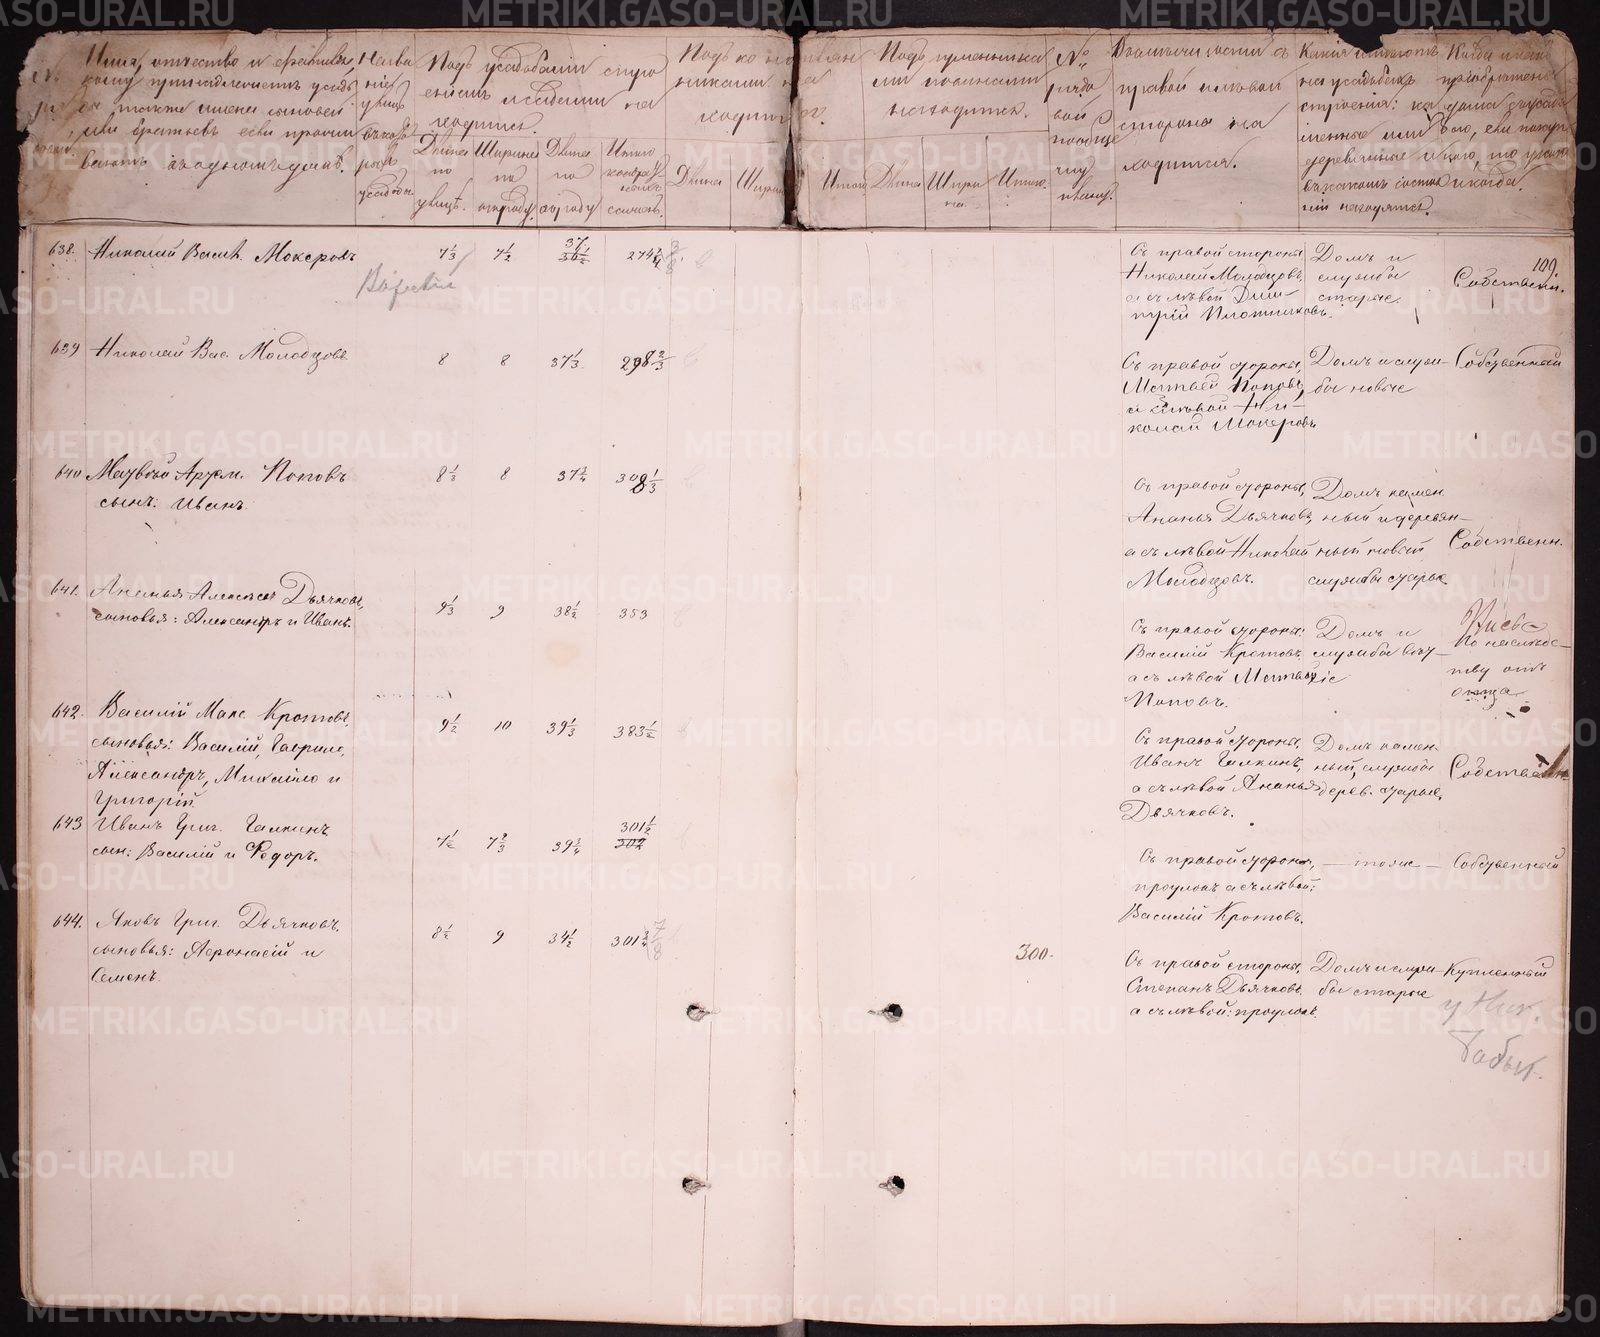 Имя, отчество и фамилія,
кому принадлежитъ усадь-
ба, также имена сыновей
или братьевъ если прожи-
ваютъ въ одномъ домѣ.
Назва
ніе
улицъ
въ кото
рыхъ
усадьбы
Подъ усадьбами стро
еніемъ и садами на
ходится.
Длина
по
улицѣ.
Ширина
по
огороду
Длина
по
огороду
Итого
квадра
сажень.
Подъ коноплян
никами на
ходится.
Длина
Ширин
Итого
Подъ гуменника
ми
находится.
Длина
Шири
на
Итого.
№
рядо
вой
по
улицѣ.
съ
правой и лѣвой
стороны на
ходится.
Какія имѣются
на усадьбахъ
строенія: ка
менныя или
деревянныя и
въ какомъ состоя
ніи находятся.
Когда
пріобрѣтена
усадь
ба, если покуп
кою, то у кого
и когда.
638. Николай Васил. Мокеровъ
7 1/3 7 1/2 37 36 1/2 274 3/4
Съ правой стороны
Николай Молодцовъ,
а съ лѣвой Дми-
трій Плотниковъ.
Домъ и
службы
старые
109.
Собственн.
639 Николай Вас. Молодцовъ
8 8 37 1/3 298 2/3
Съ правой стороны,
Матвей Поповъ,
а съ лѣвой Ни-
колай Мокеровъ
Домъ и служ-
бы новые
Собственный
640 Матвѣй Артем. Поповъ
сынъ: Иванъ.
8 1/3 8 37 3/4 308 1/3
Съ правой стороны,
Ананья Дьячковъ,
а съ лѣвой Николай
Молодцовъ.
Домъ камен
ный и деревян-
ный новый
службы старые
Собственн.
641. Ананья Алексѣев Дьячковъ,
сыновья: Александръ и Иванъ.
9 1/3 9 38 1/2 353
Съ правой стороны:
Василій Кротовъ
а съ лѣвой Матвей
Поповъ.
Домъ и
службы вет-
хіе
По наслѣдс-
тву отъ
отца
642. Василій Макс. Кротовъ,
сыновья: Василій, Гаврило,
Александръ, Михайло и
Григорій
9 1/2 10 39 1/3 383 1/2
Съ правой стороны,
Иванъ Галкинъ,
а съ лѣвой Ананья
Дьячковъ.
Домъ камен-
ный, службы
дерев. старые,
Собственн
643 Иванъ Григ. Галкинъ
сын: Василій и Федоръ.
7 1/2 7 2/3 39 3/4 301 1/2 302
Съ правой стороны,
проулокъ а съ лѣвой:
Василій Кротовъ.
— тоже —
Собственный
644. Яковъ Григ. Дьячковъ.
сыновья: Афонасій и
Семенъ.
8 1/2 9 34 1/2 301 3/4 7/8
300.
Съ правой стороны,
Степанъ Дьячковъ
а съ лѣвой: проулокъ.
Домъ и служ-
бы старые
Купленный
у Ник.
METRIKI.GASO-URAL.RU